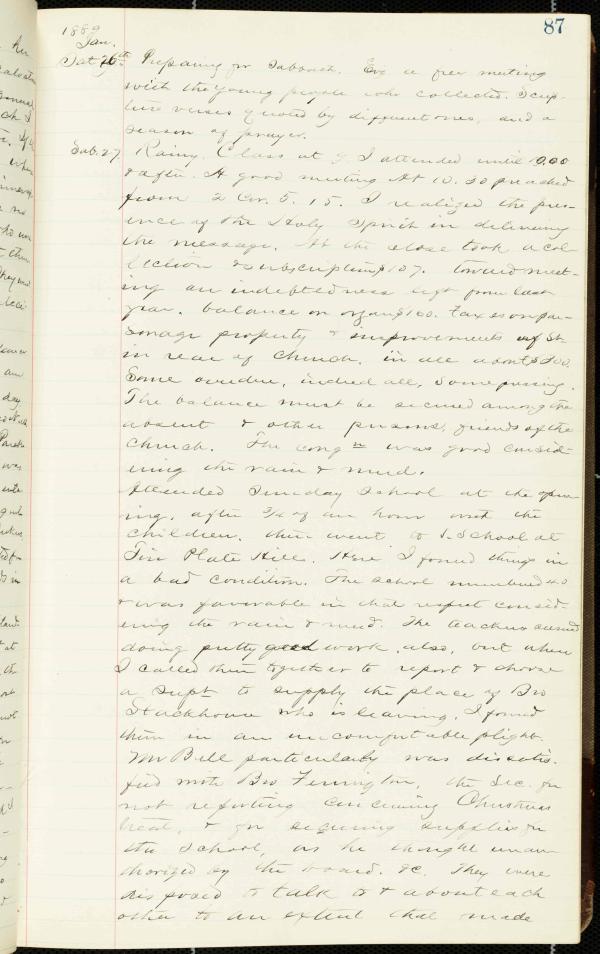 87
1889
Jan.
Sat 26th Preparing for Sabbath. Eve a free meeting
with the young people who collected. Scrip-
ture verses quoted by different ones, and a
season of prayer.
Sab. 27 Rainy. Class at 9 I attended until 10.00
& after. A good meeting At 10.30 preached
from 2 Cor. 5. 15. I realized the pres-
ence of the Holy Spirit in delivering
the message. At the close took a col-
lection & subscription $107. toward meet-
ing an indebtedness left from last
year. balance on organ $100. taxes on par-
sonage property & improvements of St.
in rear of church. in all about $200.
Some overdue, indeed all, some pressing.
The balance must be secured among the
absent & other persons, friends of the
church. The congn was good consid-
ering the rain & mud.
Attended Sunday School at the open-
ing. after 3/4 of an hour with the
children. then went to S. School at
Tin Plate Hill. Here I found things in
a bad condition. The school numbered 40
& was favorable in that respect consid-
ering the rain & mud. The teachers seemed
doing pretty good work, also, but when
I called them together to report & choose
a Supt to supply the place of Bro
Stackhouse who is leaving, I found
them in an uncomfortable plight.
Mr Bell particularly was dissatis-
fied with Bro Fennington, the Sec. for
not reporting concerning Christmas
treat, & for securing supplies for
the School, as he thought unau-
thorized by the board. &c. They were
disposed to talk to & about each
other to an extent that made